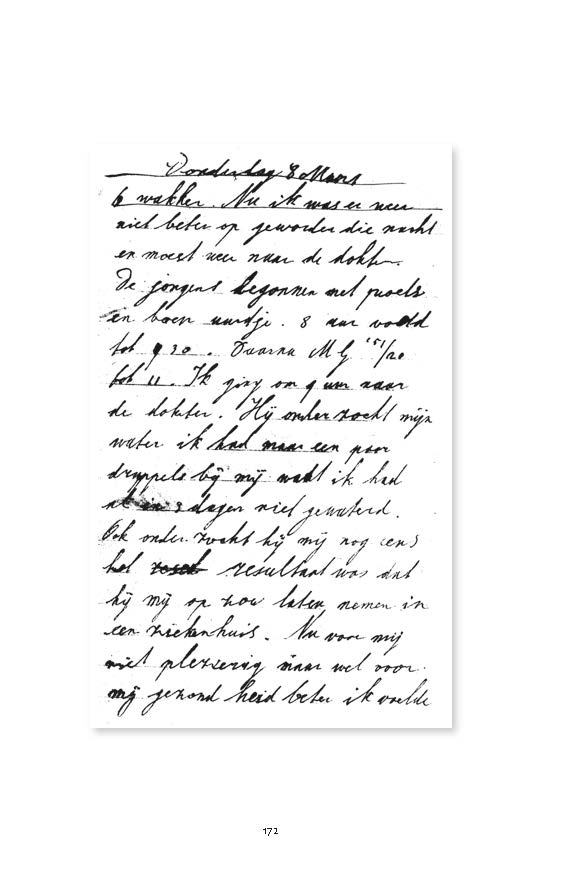 Donderdag 8 Maars
6 wakker. Nu ik was er weer
niet beter op geworden die nacht
en moest weer naar de dokter.
De jongens begonnen met proels
en boen uurtje. 8 uur voold
tot 9 30. Daarna M G 151/20
tot 11. Ik ging om 9 uur naar
de dokter. Hij onder zocht mijn
water ik had maar een paar
druppels bij mij want ik had
al in 3 dagen niet gewaterd.
Ook onder zocht hij mij nog eens
het resultaat was dat
hij mij op zou laten nemen in
een ziekenhuis. Nu voor mij
niet plezierig maar wel voor
mij gezond heid beter ik voelde
172